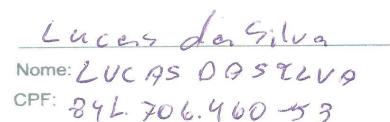 Lucas da Silva
Nome: LUCAS DA SILVA
CPF: 841.706.460-53